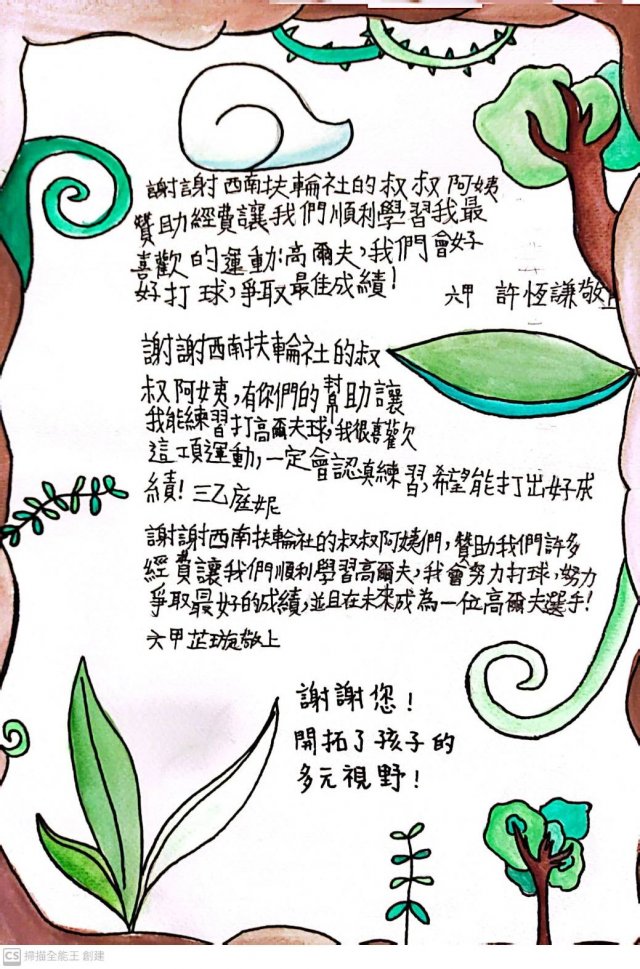 謝謝西南扶輪社的叔叔阿姨
贊助經費讓我們順利學習我最
喜歡的運動:高爾夫,我們會好
好打球,爭取最佳成績!
六甲 許恆謙敬上
謝謝西南扶輪社的叔
叔阿姨,有你們的幫助讓
我能練習打高爾夫球,我很喜歡
這項運動,一定會認真練習,希望能打出好成
績!三乙庭妮
謝謝西南扶輪社的叔叔阿姨們,贊助我們許多
經費讓我們順利學習高爾夫,我會努力打球,努力
爭取最好的成績,並且在未來成為一位高爾夫選手!
六甲芷璇敬上
謝謝您!
開拓了孩子的
多元視野!
CS 掃描全能王 創建